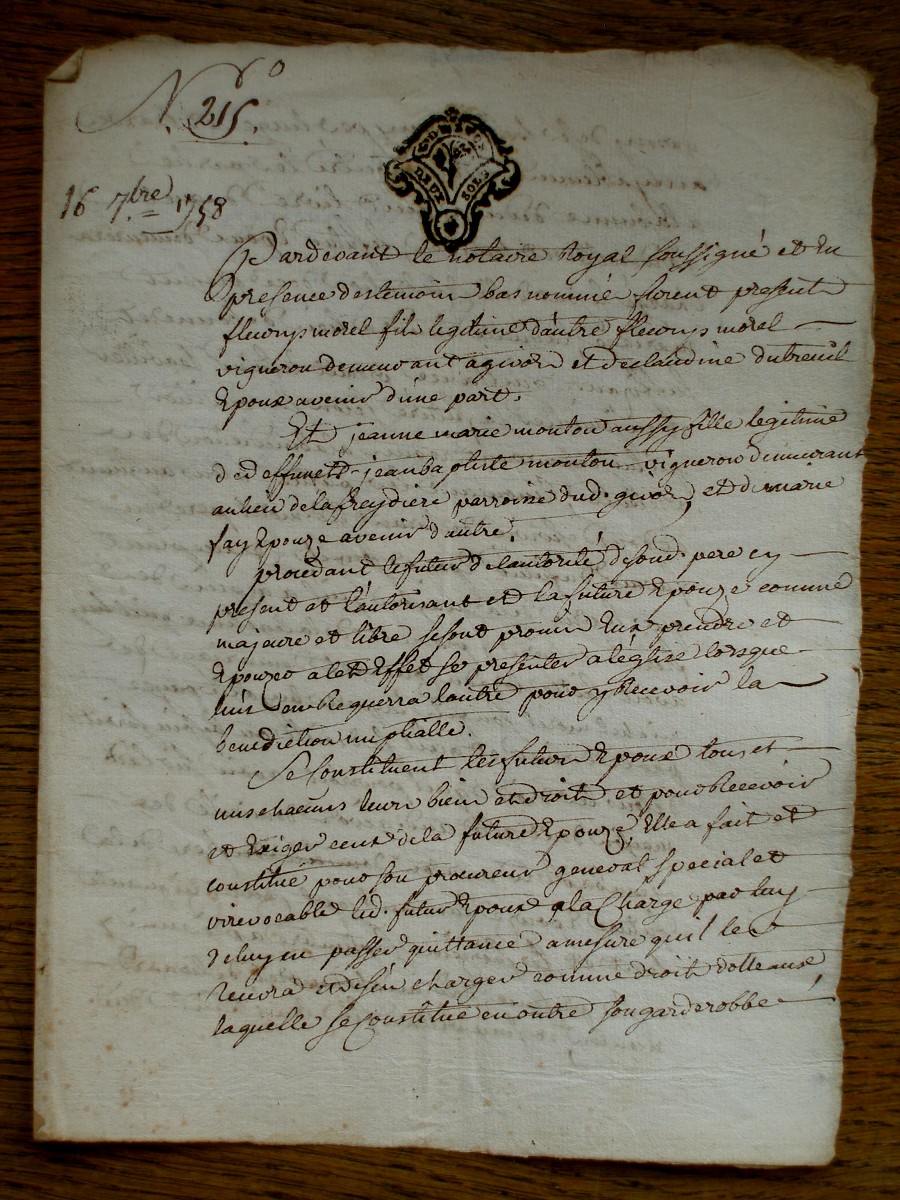 N.ro 215.
16 7bre 1758
DEUX SOLS
Pardevant le notaire Royal soussigné et En
presence des temoin bas nommé furent present
fleurys morel fils legitime d'autre fleurys morel
vigneron demeurant a givors et de claudine dutreuil
Epoux avenir d'une part.
Et jeanne marie monton aussy fille legitime
de deffunets jean baptiste monton vigneron demeurant
au lieu de la freydiere parroisse dud. givors, et de marie
fay Epouze avenir d'autre.
procedant le futur de l'autorité de sond. pere cy
present et l'autorisant et la future Epouze comme
majeure et libre se sont promis Eux prendre et
Epouzer a cet Effet se presenter a l'église lorsque
l'un en Requerra l'autre pour y Recevoir la
benediction nuptialle.
Se Constituent les futurs Epoux tous et
uns chacuns leurs biens et droits et pour Recevoir
et Exiger ceux de la future Epouze, Elle a fait et
constitué pour son procureur general special et
irrevocable led. futur Epoux a la Charge par luy
de luy en passer quittance a mesure qu'il les
Recevra et d'en charger comme droit dotteaux
laquelle se Constitue en outre son garderobbe